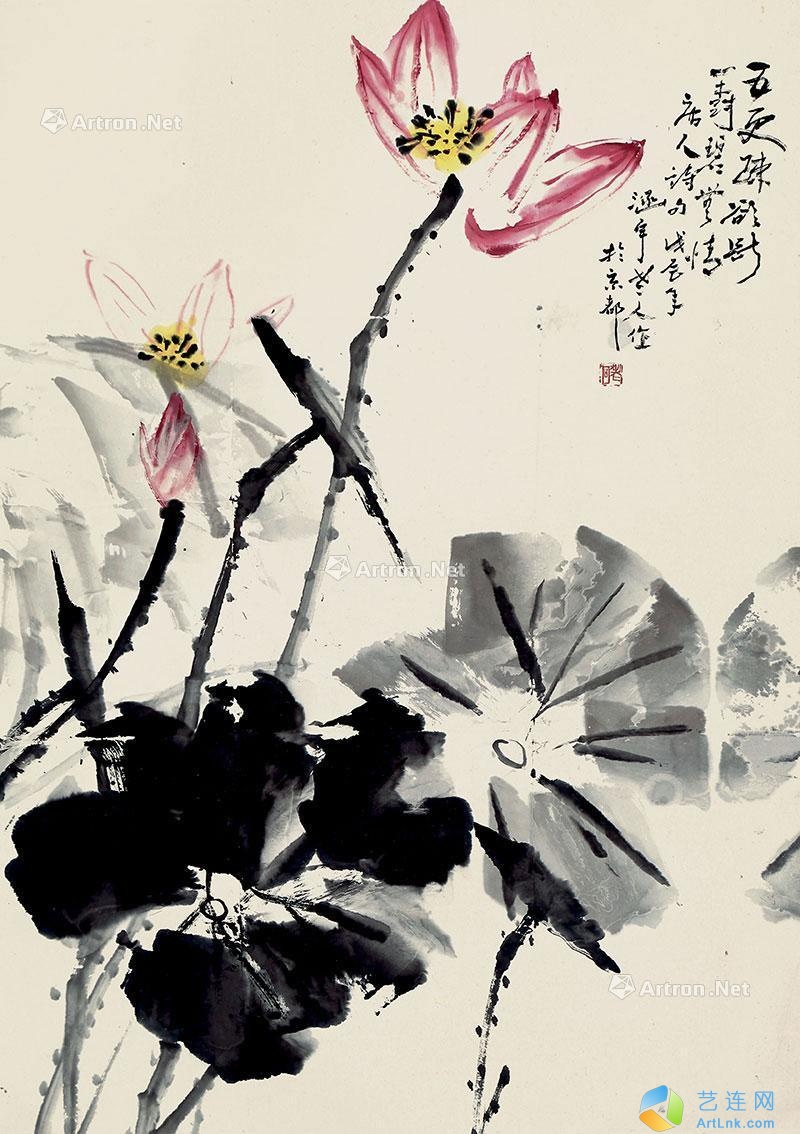 五更疎欲断
一樹碧無情
唐人詩句 戊辰年
涵宇老人作
於京都
Artron.Net
Artron.Net
Artron.Net
艺连网
ArtLnk.com